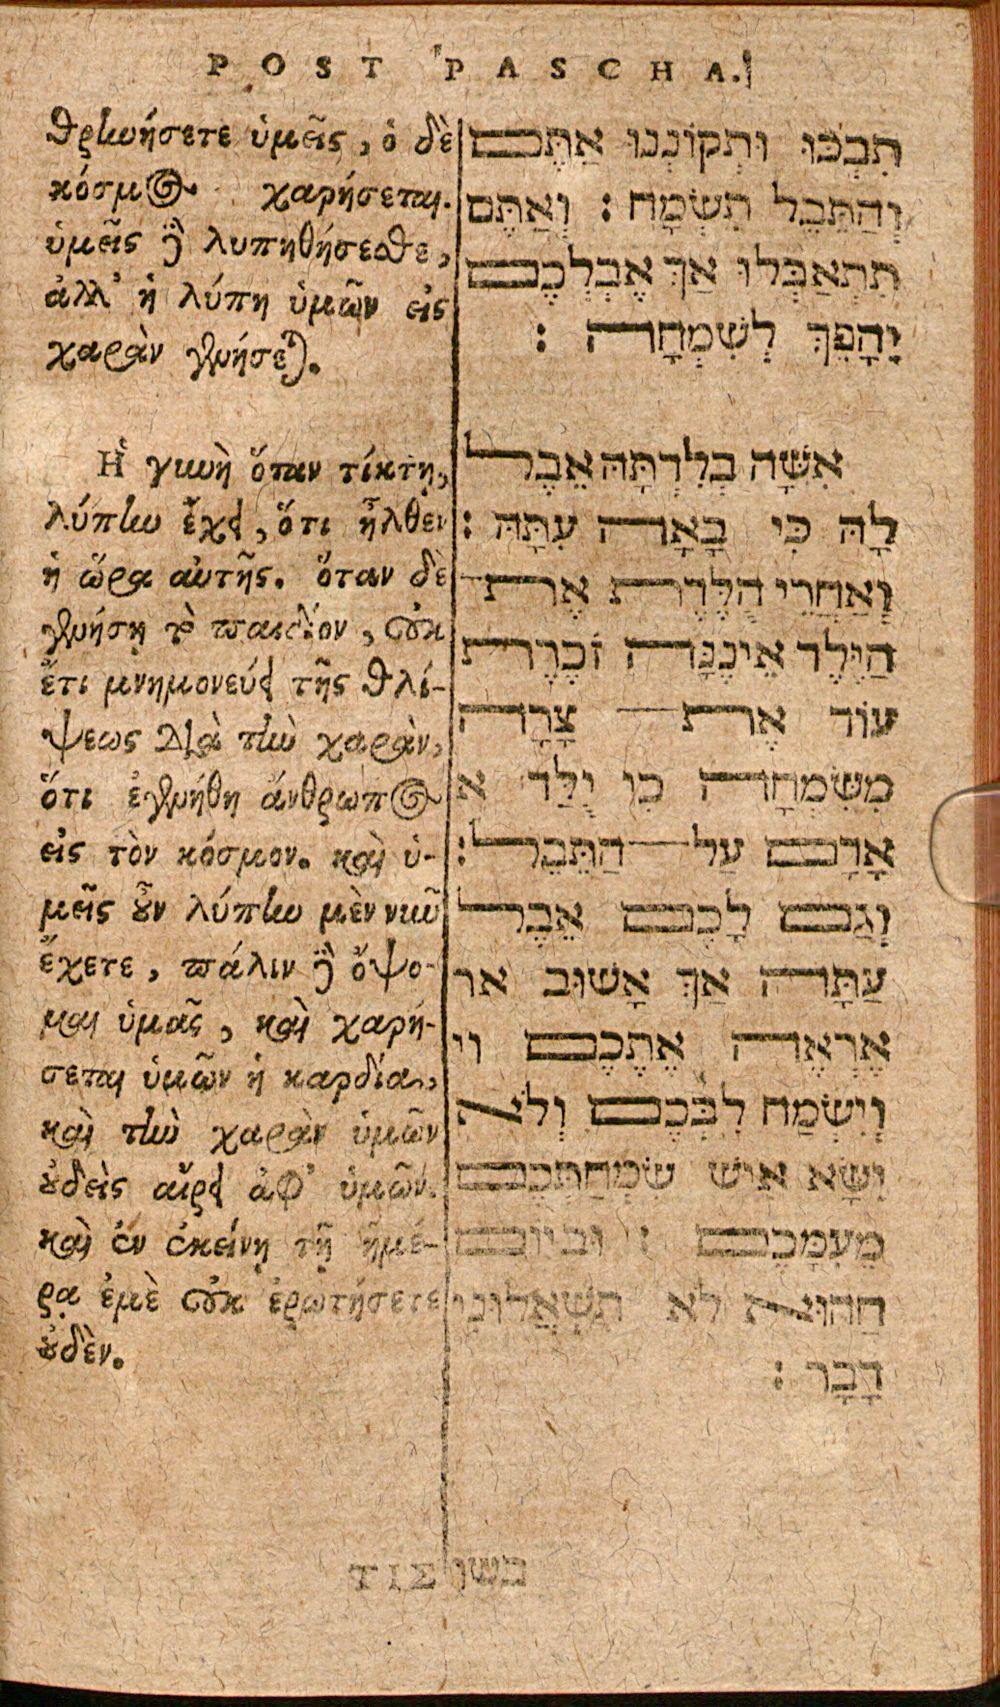 POST PASCHA.
θρηνήσετε ὑμεῖς, ὁ δὲ
κόσμος χαρήσεται.
ὑμεῖς δὲ λυπηθήσεσθε,
ἀλλ' ἡ λύπη ὑμῶν εἰς
χαρὰν γενήσεται.
Ἡ γυνὴ ὅταν τίκτῃ,
λύπην ἔχει, ὅτι ἦλθεν
ἡ ὥρα αὐτῆς. ὅταν δὲ
γεννήσῃ τὸ παιδίον, οὐκ
ἔτι μνημονεύει τῆς θλί-
ψεως διὰ τὴν χαρὰν,
ὅτι ἐγεννήθη ἄνθρωπος
εἰς τὸν κόσμον. καὶ ὑ-
μεῖς οὖν λύπην μὲν νῦν
ἔχετε, πάλιν δὲ ὄψο-
μαι ὑμᾶς, καὶ χαρή-
σεται ὑμῶν ἡ καρδία,
καὶ τὴν χαρὰν ὑμῶν
οὐδεὶς αἴρει ἀφ' ὑμῶν.
καὶ ἐν ἐκείνῃ τῇ ἡμέ-
ρᾳ ἐμὲ οὐκ ἐρωτήσετε
οὐδὲν.
תִבְכּוּ וּתְקוֹנְנוּ אַתֶּם
וְהַתֵּבֵל תִּשְׂמָח : וְאַתֶּם
תִתְאַבְּלוּ אַךְ אֶבְלְכֶם
יָהָפֵךְ לְשִׂמְחָה :
אִשָּׁה בְּלִדְתָּהּ אֵבֶל
לָהּ כִּי בָאָה עִתָּהּ :
וְאַחֲרֵי הֲלֶדֶת אֶת־
הַיֶּלֶד אֵינֶנָּה זֹכֶרֶת
עוֹד אֶת־ צָרָה
מִשִּׂמְחָה כִּי יֻלַּד א
אָדָם עַל־הַתֵּבֵל :
וְגַם לָכֶם אֵבֶל
עַתָּה אַךְ אָשׁוּב אר
אֶרְאֶה אֶתְכֶם וי
וְיִשְׂמַח לִבְּכֶם וְלֹא
יִשָּׂא אִישׁ שִׂמְחַתְכֶם
מֵעִמָּכֶם : וּבַיּוֹם
הַהוּא לֹא תִשְׁאֲלוּנִי
דָבָר :
ΤΙΣ משו